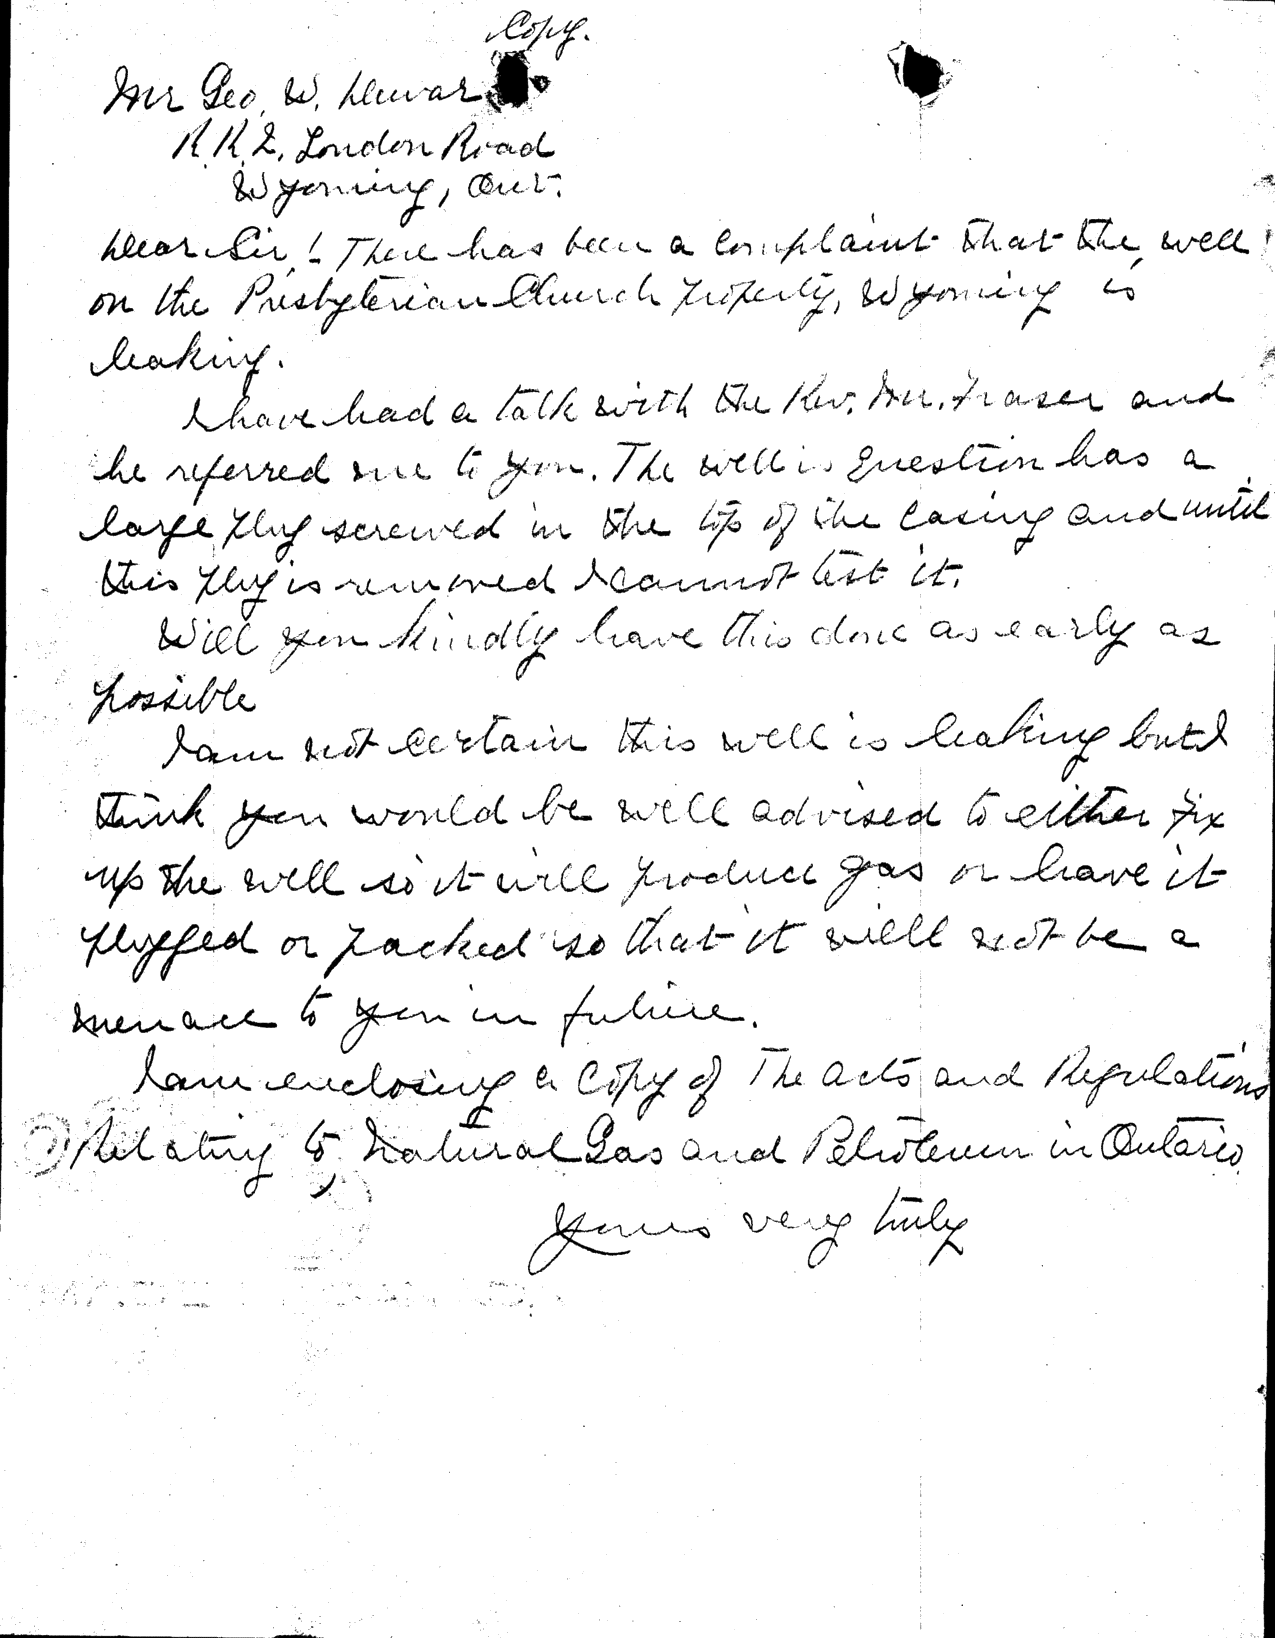 Copy.
Mr Geo. W. Dewar
R.R.2, London Road
Wyoming, Ont.
Dear Sir! There has been a complaint that the well
on the Presbyterian Church property, Wyoming is
leaking.
I have had a talk with the Rev. Mr. Fraser and
he referred me to you. The well in question has a
large plug screwed in the top of the casing and until
this plug is removed I cannot test it.
Will you kindly have this done as early as
possible
I am not certain this well is leaking but I
think you would be well advised to either fix
up the well so it will produce gas or have it
plugged or packed so that it will not be a
menace to you in future.
I am enclosing a copy of The Acts and Regulations
Relating to Natural Gas and Petroleum in Ontario.
Yours very truly